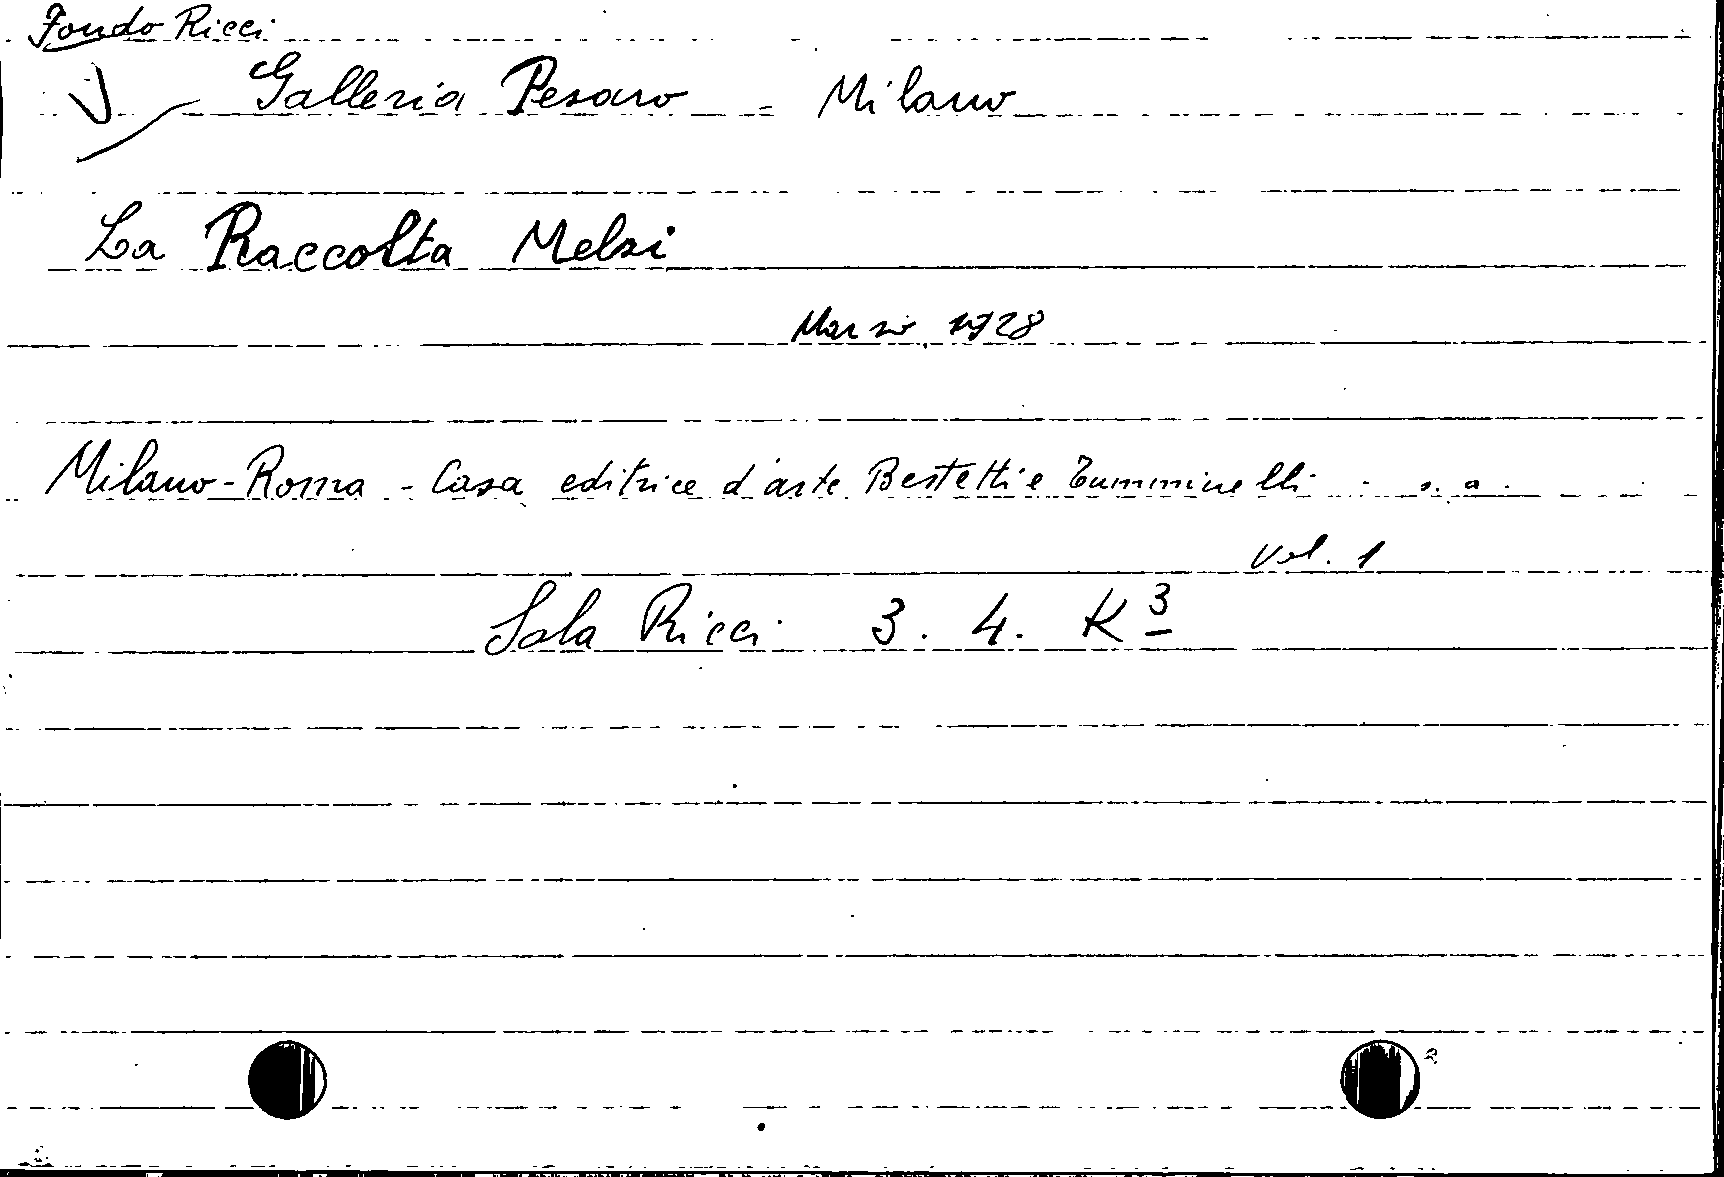 Fondo Ricci
Galleria Pesaro - Milano
La Raccolta Melzi
Marzo 1928
Milano-Roma - Casa editrice d'arte Bestetti e Tumminelli - s. a.
vol. 1
Sala Ricci 3. 4. K 3